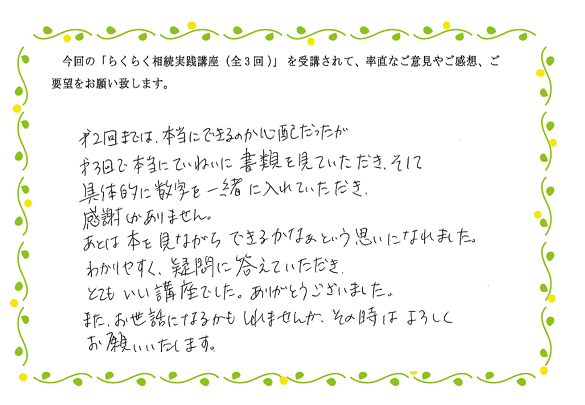 今回の「らくらく相続実践講座（全3回）」を受講されて、率直なご意見やご感想、ご
要望をお願い致します。
第2回までは、本当にできるのか心配だったが
第3回で本当にていねいに書類を見ていただき、そして
具体的に数字を一緒に入れていただき、
感謝しかありません。
あとは本を見ながらできるかなぁという思いになれました。
わかりやすく、疑問に答えていただき、
とてもいい講座でした。ありがとうございました。
また、お世話になるかもしれませんが、その時はよろしく
お願いいたします。